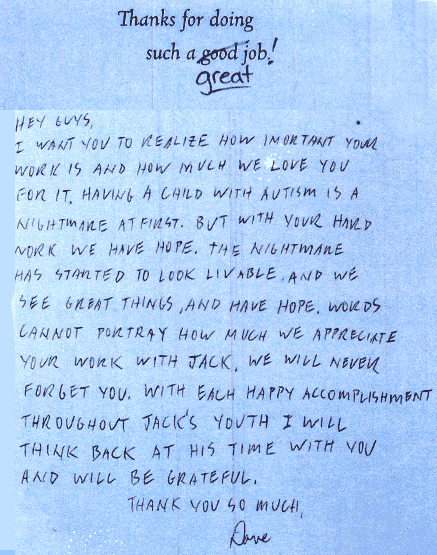 Thanks for doing
such a good job!
great
HEY GUYS,
I WANT YOU TO REALIZE HOW IMORTANT YOUR
WORK IS AND HOW MUCH WE LOVE YOU
FOR IT. HAVING A CHILD WITH AUTISM IS A
NIGHTMARE AT FIRST. BUT WITH YOUR HARD
WORK WE HAVE HOPE. THE NIGHTMARE
HAS STARTED TO LOOK LIVABLE. AND WE
SEE GREAT THINGS, AND HAVE HOPE. WORDS
CANNOT PORTRAY HOW MUCH WE APPRECIATE
YOUR WORK WITH JACK. WE WILL NEVER
FORGET YOU. WITH EACH HAPPY ACCOMPLISHMENT
THROUGHOUT JACK'S YOUTH I WILL
THINK BACK AT HIS TIME WITH YOU
AND WILL BE GRATEFUL.
THANK YOU SO MUCH,
Dave